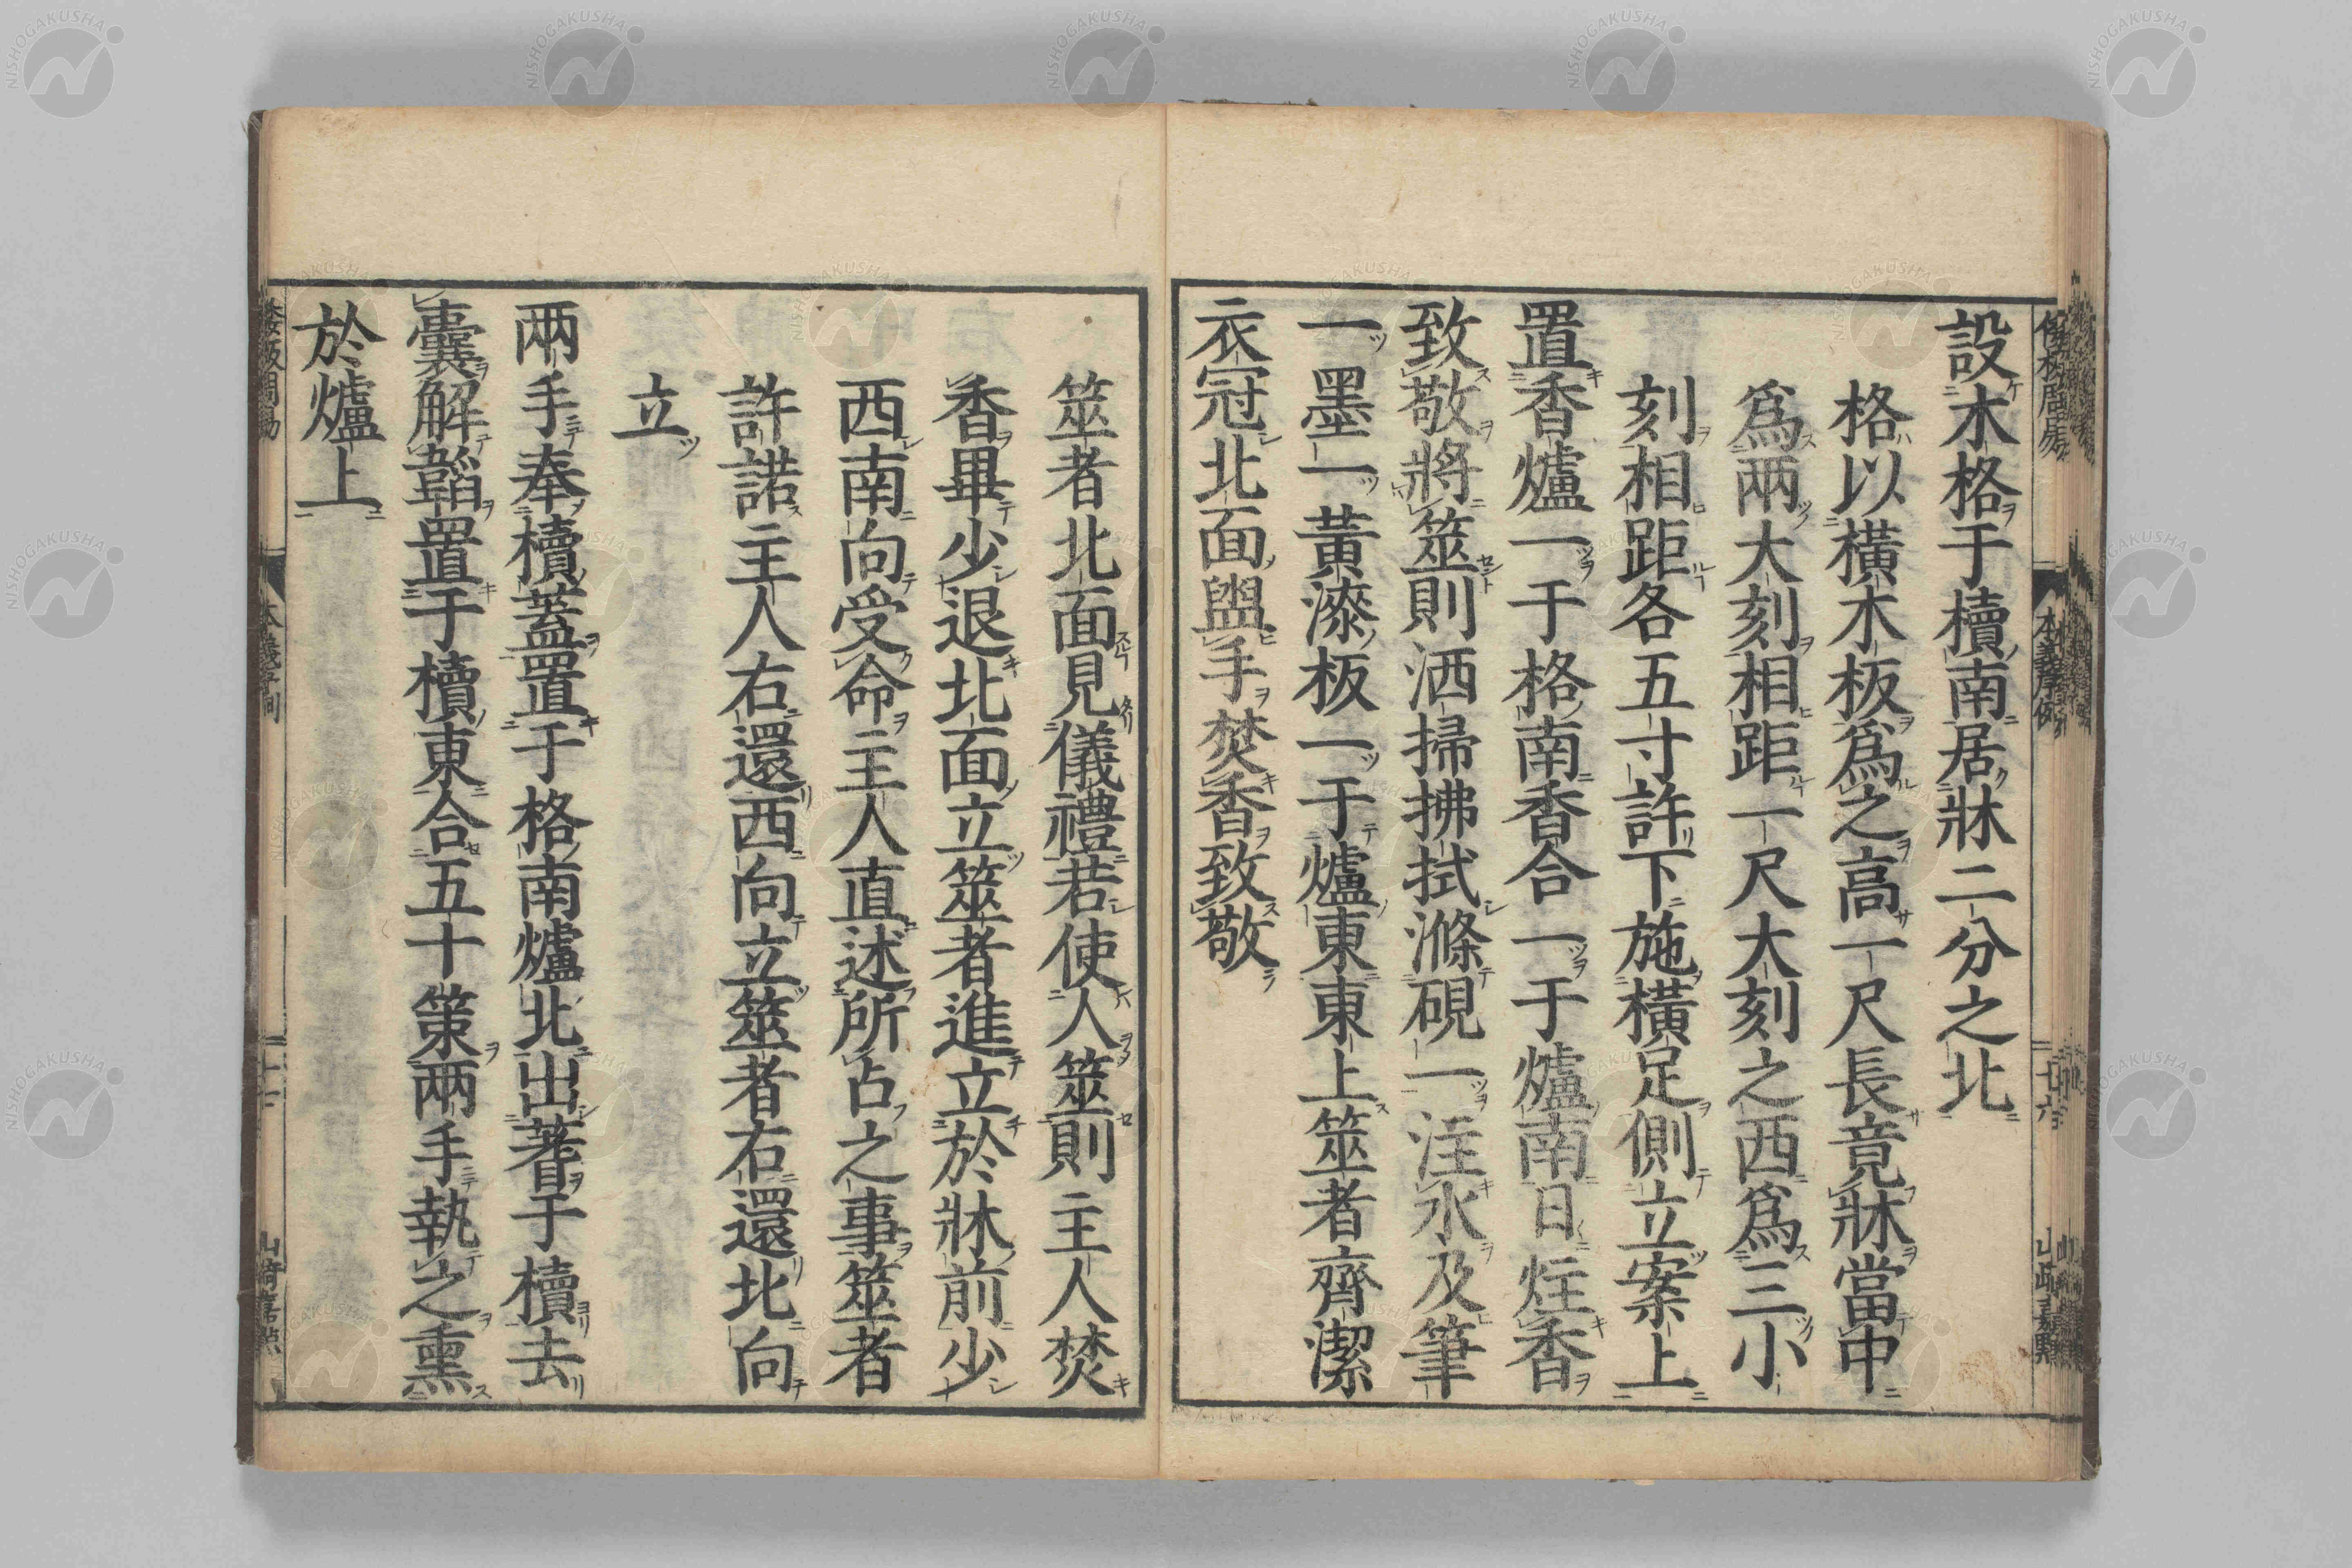 設木格于櫝南居牀二分之北
格以橫木板爲之高一尺長竟牀當中
爲兩大刻相距一尺大刻之西爲三小
刻相距各五寸許下施橫足側立案上
置香爐一于格南香合一于爐南日炷香
致敬將筮則洒掃拂拭滌硯一注水及筆
一墨一黃漆板一于爐東東上筮者齊潔
衣冠北面盥手焚香致敬
筮者北面見儀禮若使人筮則主人焚
香畢少退北面立筮者進立於牀前少
西南向受命主人直述所占之事筮者
許諾主人右還西向立筮者右還北向
立
兩手奉櫝蓋置于格南爐北出蓍于櫝去
囊解韜置于櫝東合五十策兩手執之熏
於爐上
本義序例
十六
山崎嘉點
NISHOGAKUSHA